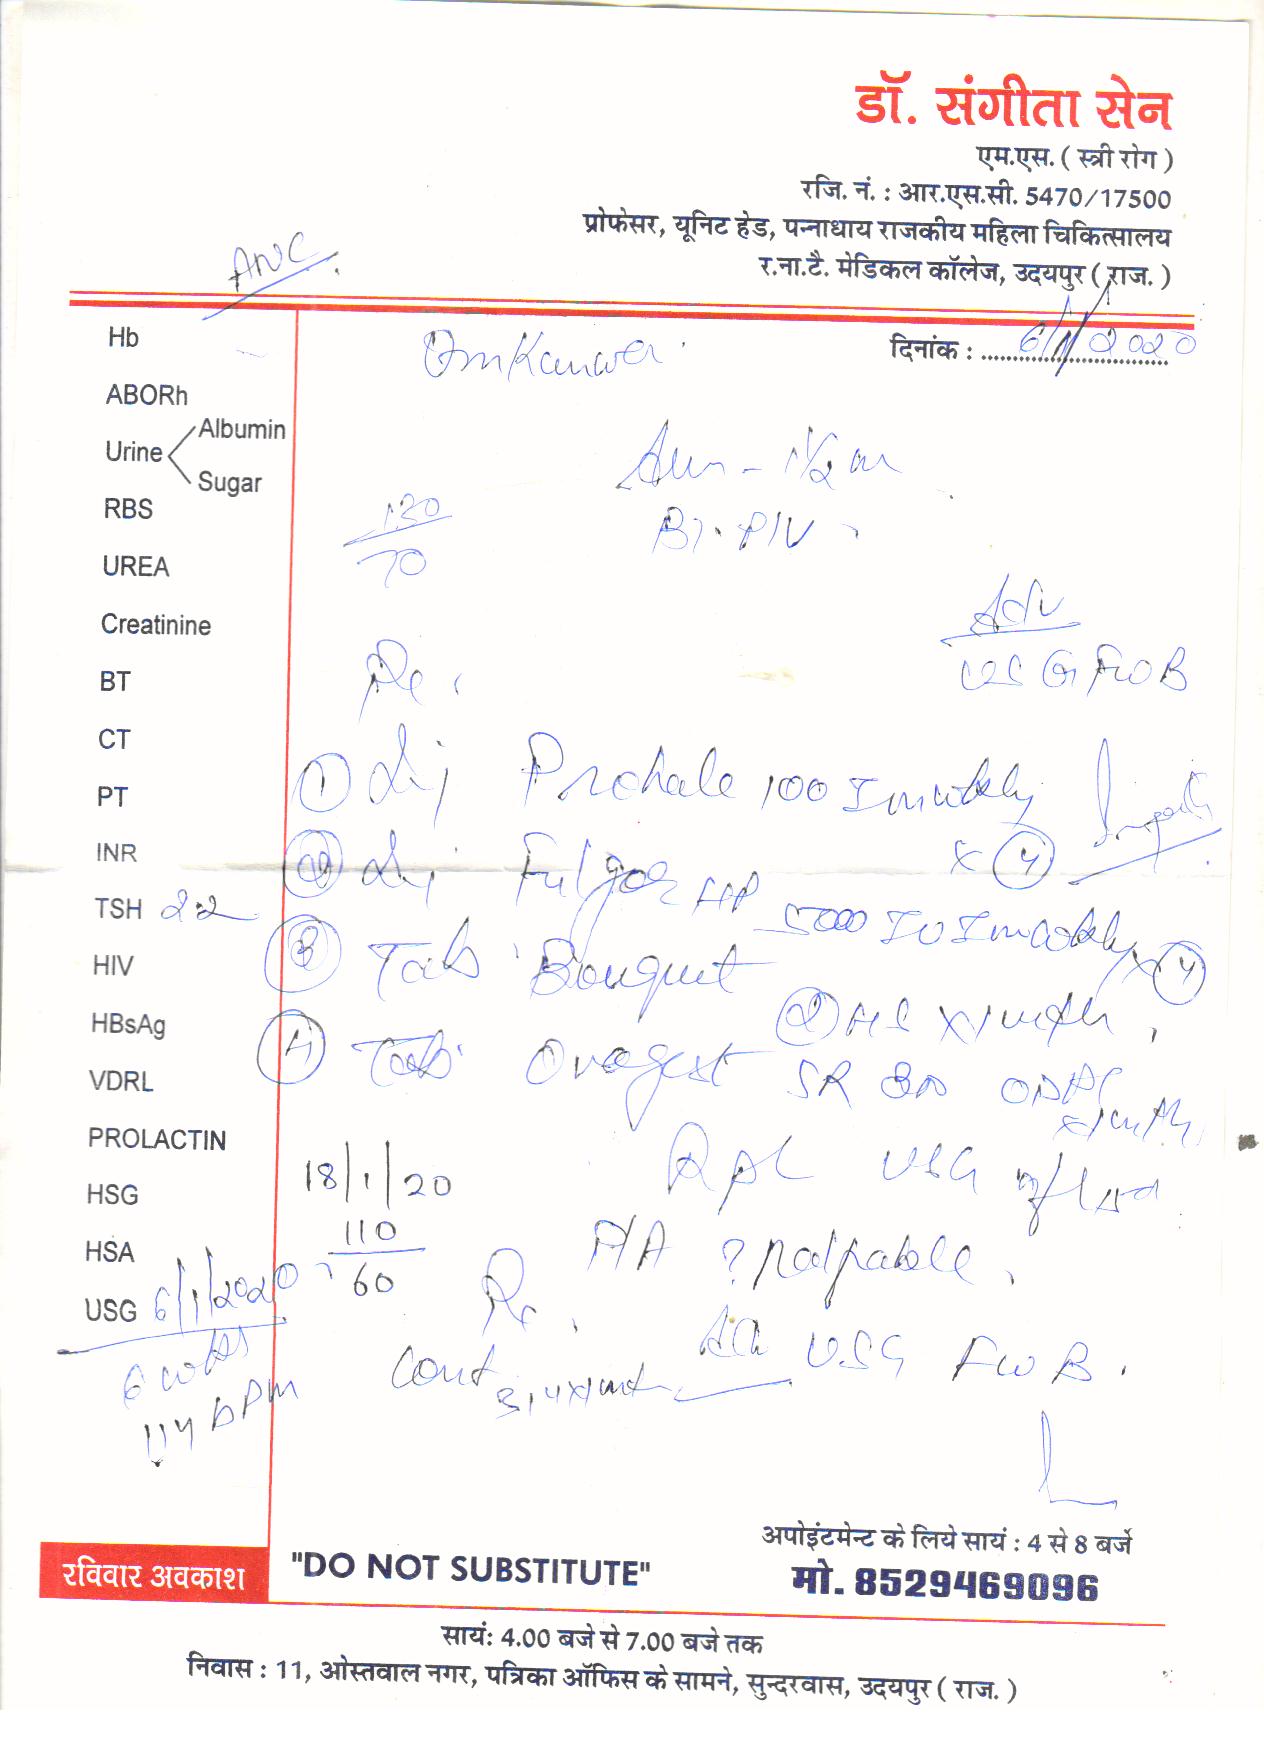 डॉ. संगीता सेन
एम.एस. ( स्त्री रोग )
रजि. नं. : आर.एस.सी. 5470/17500
प्रोफेसर, यूनिट हेड, पन्नाधाय राजकीय महिला चिकित्सालय
र.ना.टै. मेडिकल कॉलेज, उदयपुर ( राज. )
ANC
दिनांक : 6/1/2020
Omkanwar
Hb
ABORh
Urine
Albumin
Sugar
RBS
UREA
Creatinine
BT
CT
PT
INR
TSH 2.2
HIV
HBsAg
VDRL
PROLACTIN
HSG
HSA
USG 6/1/2020
6 wks
114 bPM
1 1/2
130
70
Adv
USG FWB
① Inj 100 Im wkly
x ④
② Inj HP 5000 IU Im wkly x ④
③ Tab Bouquet
HS x 1 mth
④ Tab Ovagest SR OD
x 1 mth
USG
18/1/20
110
60
P/A ? palpable
Rx
USG FWB.
Cont 3, 4 x 1 mth
रविवार अवकाश
"DO NOT SUBSTITUTE"
अपोइंटमेन्ट के लिये सायं : 4 से 8 बजे
मो. 8529469096
सायं: 4.00 बजे से 7.00 बजे तक
निवास : 11, ओस्तवाल नगर, पत्रिका ऑफिस के सामने, सुन्दरवास, उदयपुर ( राज. )